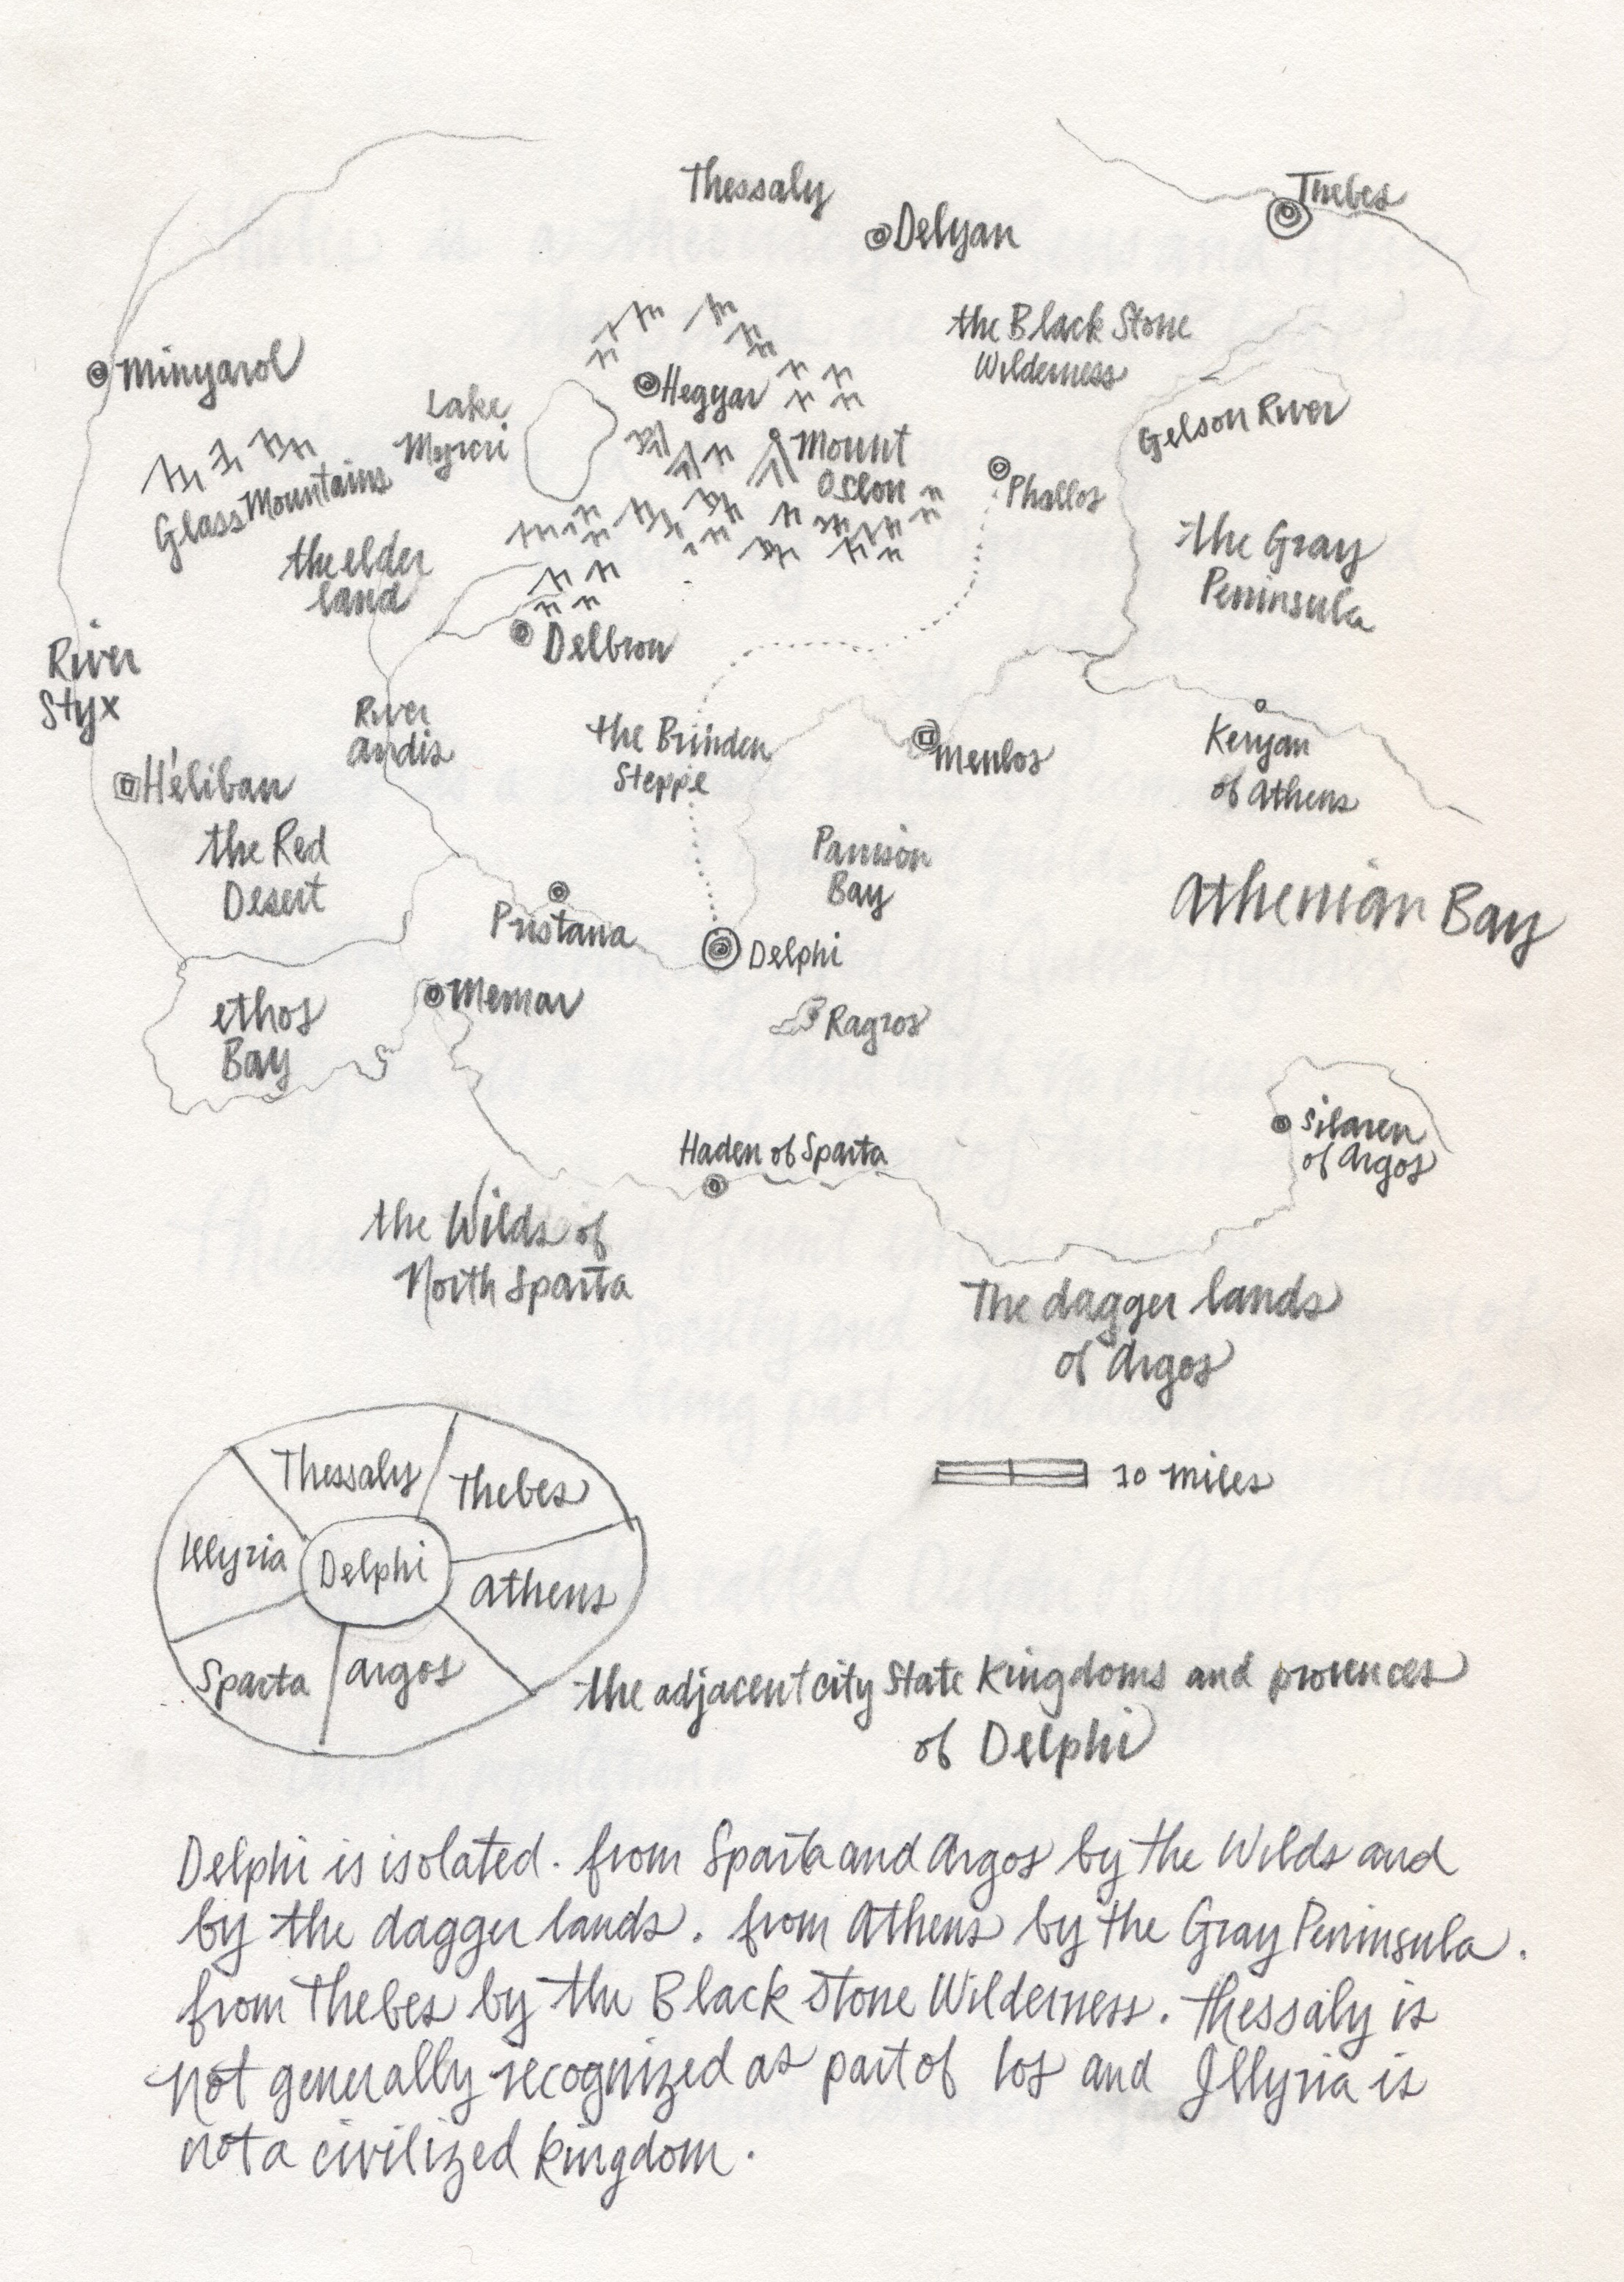 Thessaly
Thebes
Delyan
the Black Stone
Wilderness
Minyarol
Hegyar
Lake
Gelson River
Mount
Oclon
Glass Mountains
Phallos
the Gray
Peninsula
the elder
land
Delbron
River
Styx
River
Andis
the Brinden
Steppe
Menlos
Kenyan
of Athens
Héliban
the Red
Desert
Bay
Athenian Bay
Pristana
Delphi
ethos
Bay
Memar
Ragros
Silaren
of Argos
Haden of Sparta
the Wilds of
North Sparta
The dagger lands
of Argos
10 miles
Thessaly
Thebes
Illyria
Delphi
Athens
Sparta
Argos
the adjacent city State Kingdoms and provences
of Delphi
Delphi is isolated. from Sparta and Argos by the Wilds and
by the dagger lands. from Athens by the Gray Peninsula.
from Thebes by the Black Stone Wilderness. Thessaly is
not generally recognized as part of Ios and Illyria is
not a civilized kingdom.